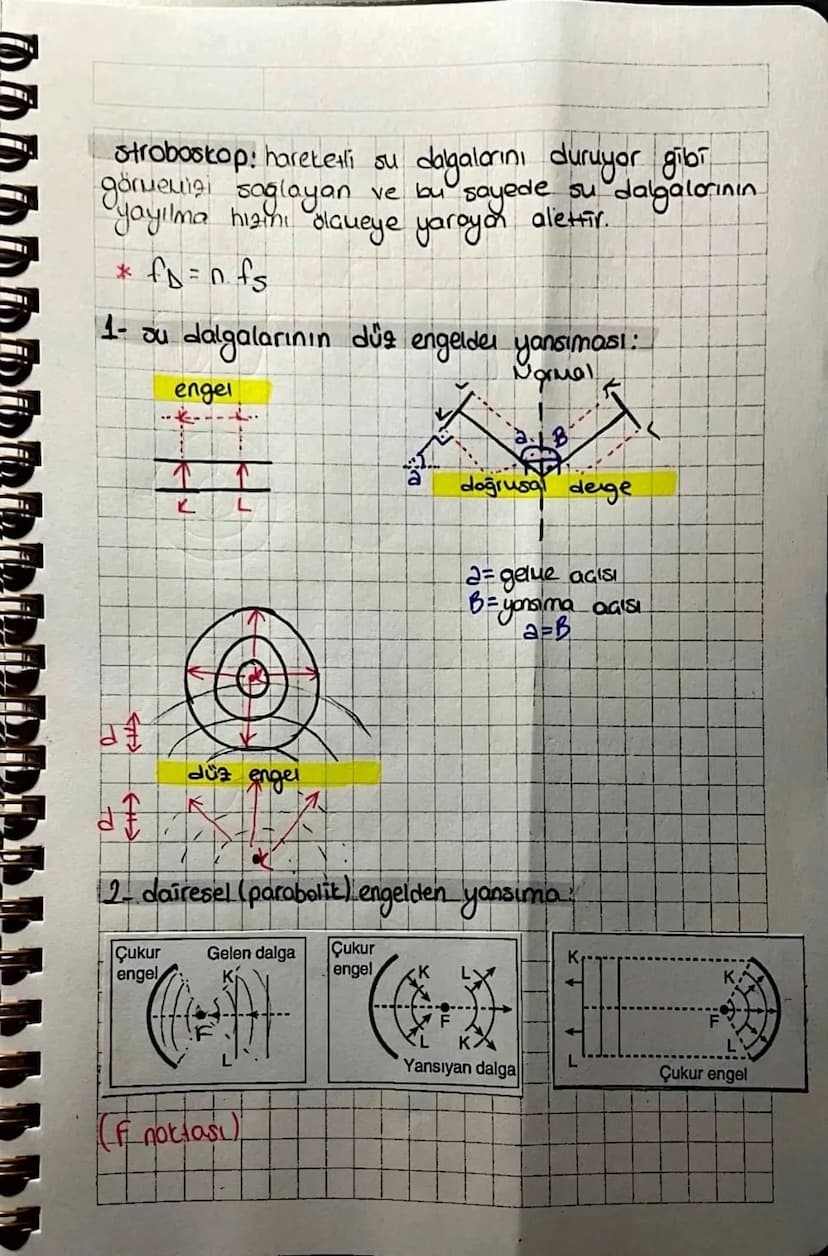 stroboskop: hareketli su dalgalarını duruyor gibi
görmemizi sağlayan ve bu sayede su dalgalarının
yayılma hızını ölçmeye yarayan alettir.
* fD = n. fS
1- su dalgalarının düz engelden yansıması:
engel
K L
Normal
K L
K L
a B
a
doğrusal derge
a= gelme açısı
B= yansıma açısı
a=B
K
d
düz engel
d
K
2- dairesel (parabolik) engelden yansıma:
Çukur engel
Gelen dalga
K
F
L
Çukur engel
K L
F
L K
Yansıyan dalga
K
K
F
L
L
Çukur engel
(F noktası)